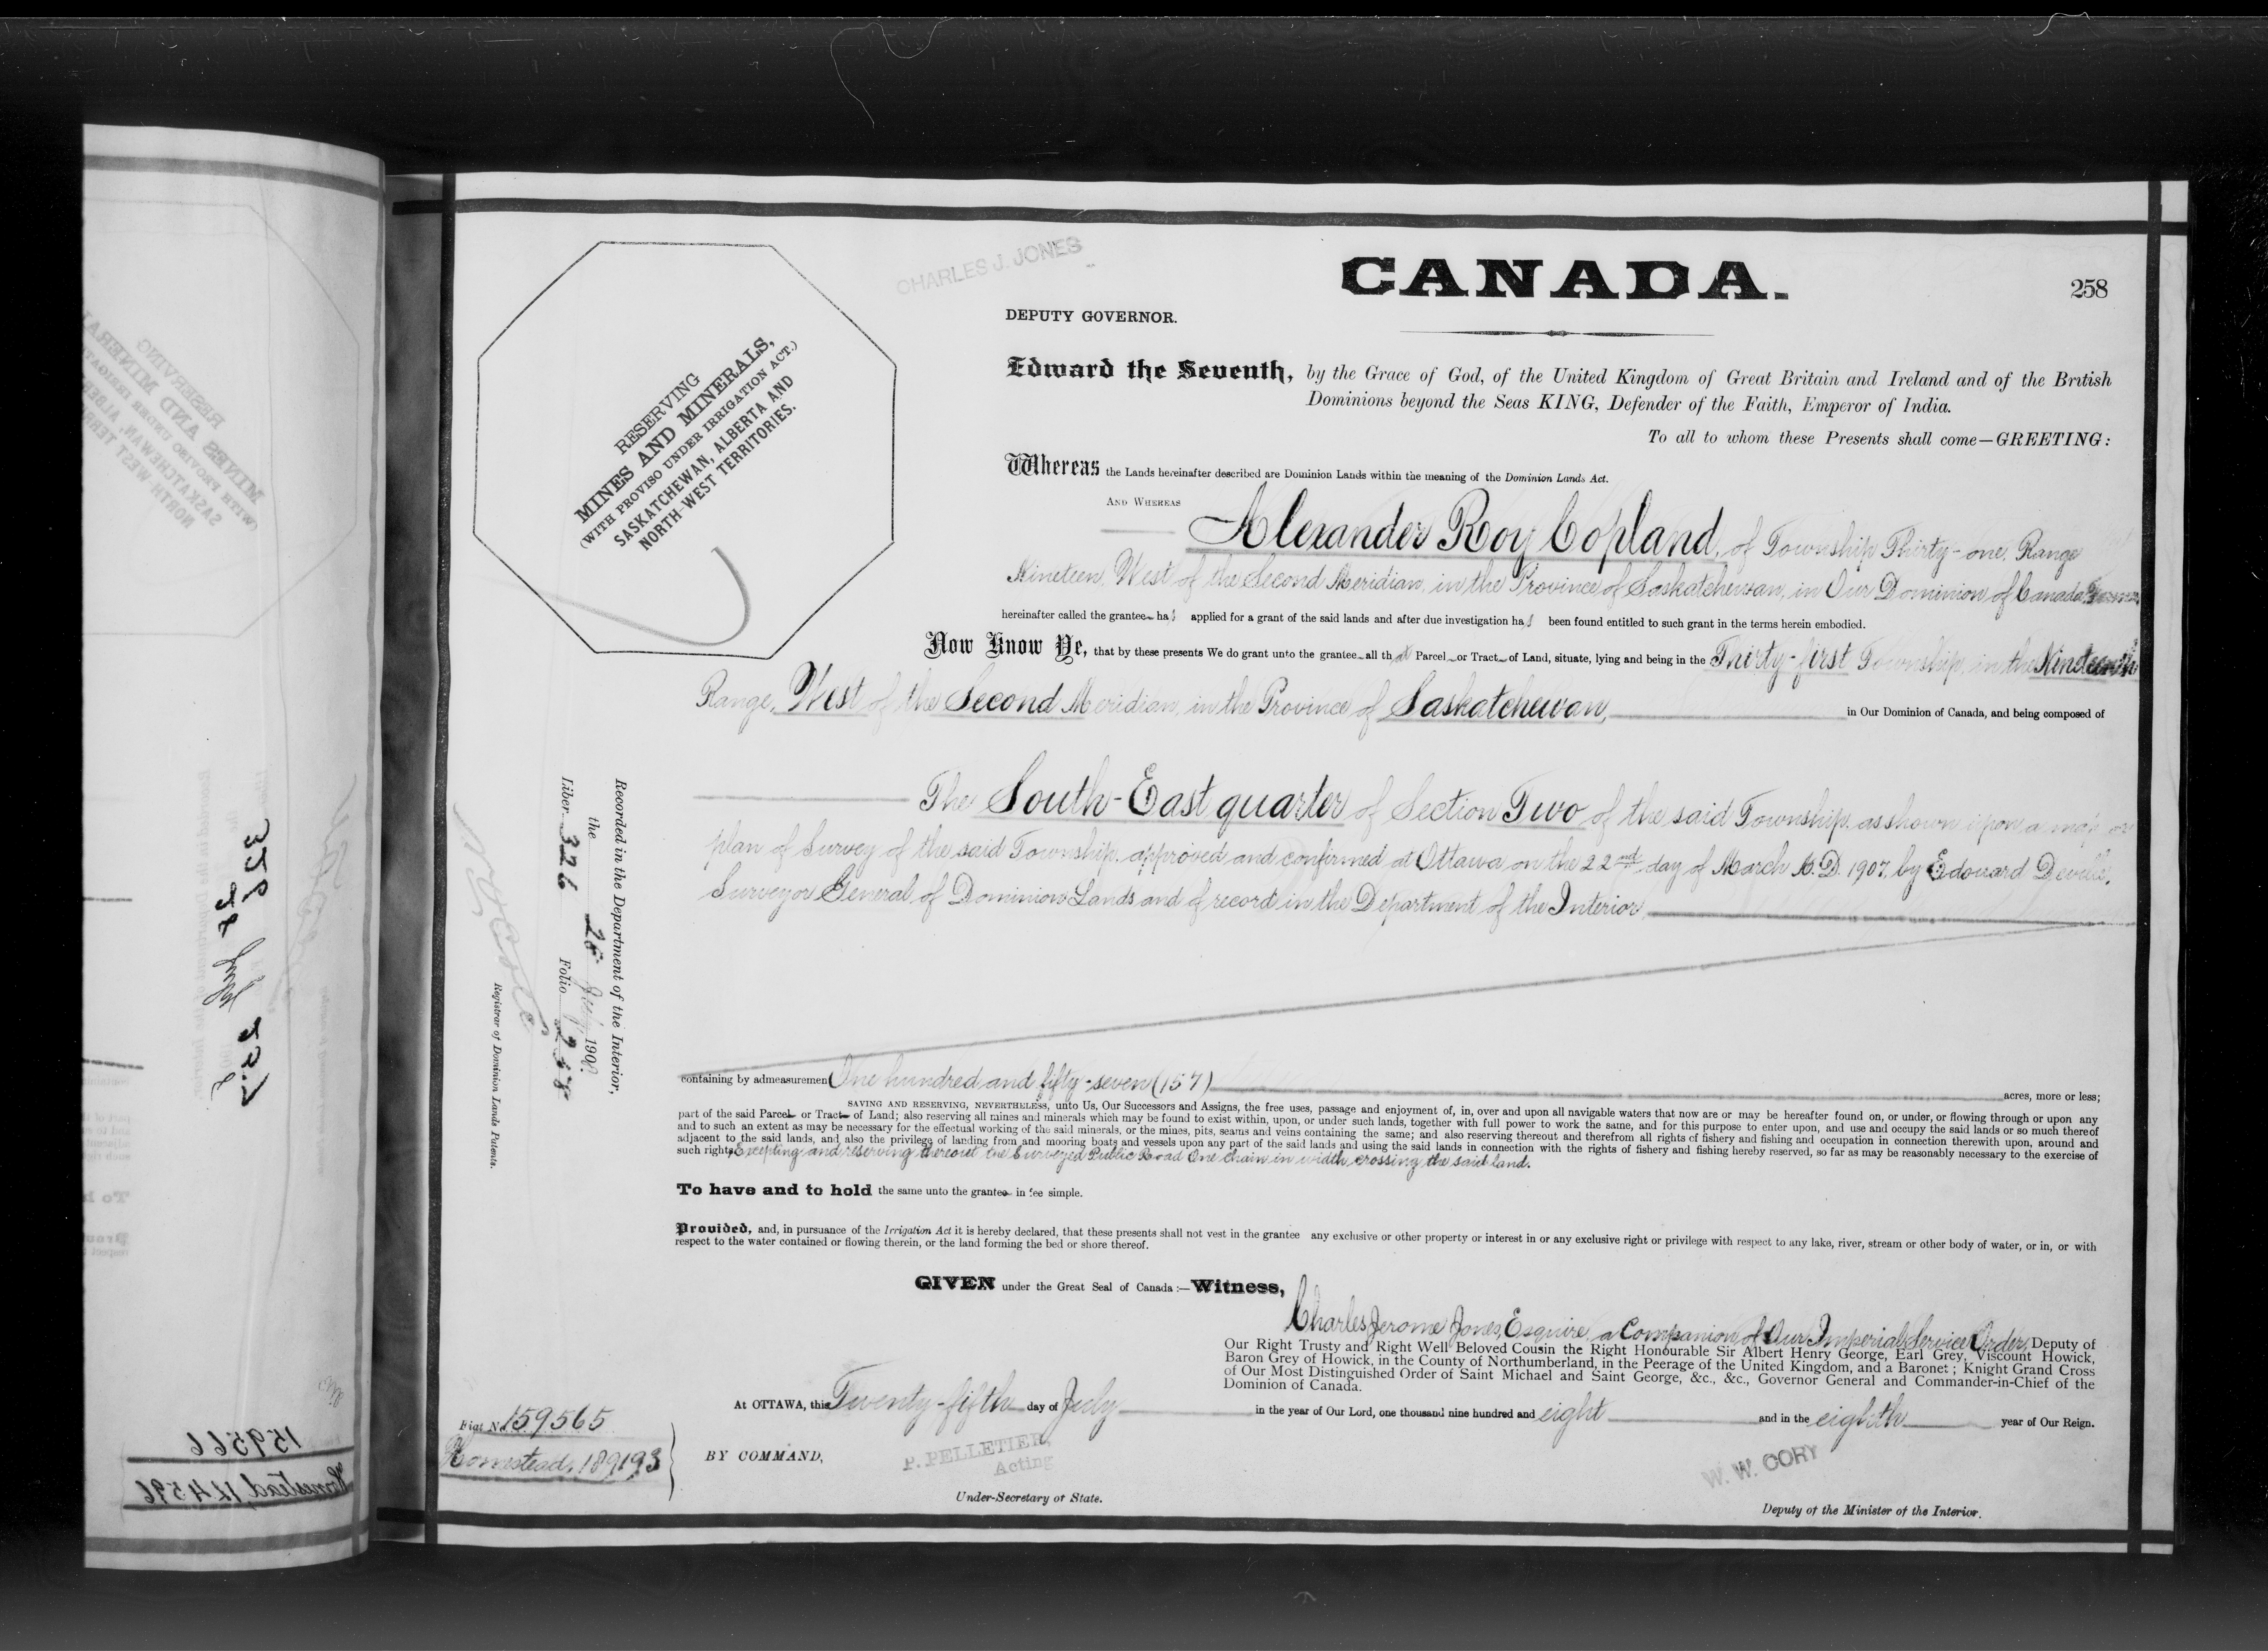 CHARLES J. JONES
CANADA.
258
DEPUTY GOVERNOR.
Edward the Seventh, by the Grace of God, of the United Kingdom of Great Britain and Ireland and of the British
Dominions beyond the Seas KING, Defender of the Faith, Emperor of India.
To all to whom these Presents shall come—GREETING:
RESERVING
MINES AND MINERALS,
(WITH PROVISO UNDER IRRIGATION ACT.)
SASKATCHEWAN, ALBERTA AND
NORTH-WEST TERRITORIES.
Whereas the Lands hereinafter described are Dominion Lands within the meaning of the Dominion Lands Act.
AND WHEREAS
Alexander Roy Copland, of Township Thirty-one, Range
Nineteen, West of the Second Meridian, in the Province of Saskatchewan, in Our Dominion of Canada,
hereinafter called the grantee has applied for a grant of the said lands and after due investigation has been found entitled to such grant in the terms herein embodied.
Now Know Ye, that by these presents We do grant unto the grantee all that Parcel or Tract of Land, situate, lying and being in the Thirty-first Township, in the Nineteenth
Range, West of the Second Meridian, in the Province of Saskatchewan, in Our Dominion of Canada, and being composed of
The South-East quarter of Section Two of the said Township, as shown upon a map or
plan of Survey of the said Township, approved and confirmed at Ottawa, on the 22nd day of March A.D. 1907, by Edouard Deville,
Surveyor General of Dominion Lands and of record in the Department of the Interior
Recorded in the Department of the Interior,
the 25 July 1908
Liber 326 Folio 258
Registrar of Dominion Lands Patents.
containing by admeasuremen One hundred and fifty-seven (157) acres, more or less;
SAVING AND RESERVING, NEVERTHELESS, unto Us, Our Successors and Assigns, the free uses, passage and enjoyment of, in, over and upon all navigable waters that now are or may be hereafter found on, or under, or flowing through or upon any
part of the said Parcel or Tract of Land; also reserving all mines and minerals which may be found to exist within, upon, or under such lands, together with full power to work the same, and for this purpose to enter upon, and use and occupy the said lands or so much thereof
and to such an extent as may be necessary for the effectual working of the said minerals, or the mines, pits, seams and veins containing the same; and also reserving thereout and therefrom all rights of fishery and fishing and occupation in connection therewith upon, around and
adjacent to the said lands, and also the privilege of landing from and mooring boats and vessels upon any part of the said lands and using the said lands in connection with the rights of fishery and fishing hereby reserved, so far as may be reasonably necessary to the exercise of
such rights, Excepting and reserving thereout the Surveyed Public Road One chain in width, crossing the said land.
To have and to hold the same unto the grantee in fee simple.
Provided, and, in pursuance of the Irrigation Act it is hereby declared, that these presents shall not vest in the grantee any exclusive or other property or interest in or any exclusive right or privilege with respect to any lake, river, stream or other body of water, or in, or with
respect to the water contained or flowing therein, or the land forming the bed or shore thereof.
GIVEN under the Great Seal of Canada:—Witness,
Charles Jerome Jones, Esquire, a Companion of Our Imperial Service Order, Deputy of
Our Right Trusty and Right Well Beloved Cousin the Right Honourable Sir Albert Henry George, Earl Grey, Viscount Howick,
Baron Grey of Howick, in the County of Northumberland, in the Peerage of the United Kingdom, and a Baronet; Knight Grand Cross
of Our Most Distinguished Order of Saint Michael and Saint George, &c., &c., Governor General and Commander-in-Chief of the
Dominion of Canada.
At OTTAWA, this Twenty-fifth day of July in the year of Our Lord, one thousand nine hundred and eight and in the eighth year of Our Reign.
Fiat No. 159565
Homestead, 189193
BY COMMAND,
P. PELLETIER,
Acting
Under-Secretary of State.
W. W. CORY
Deputy of the Minister of the Interior.
159566